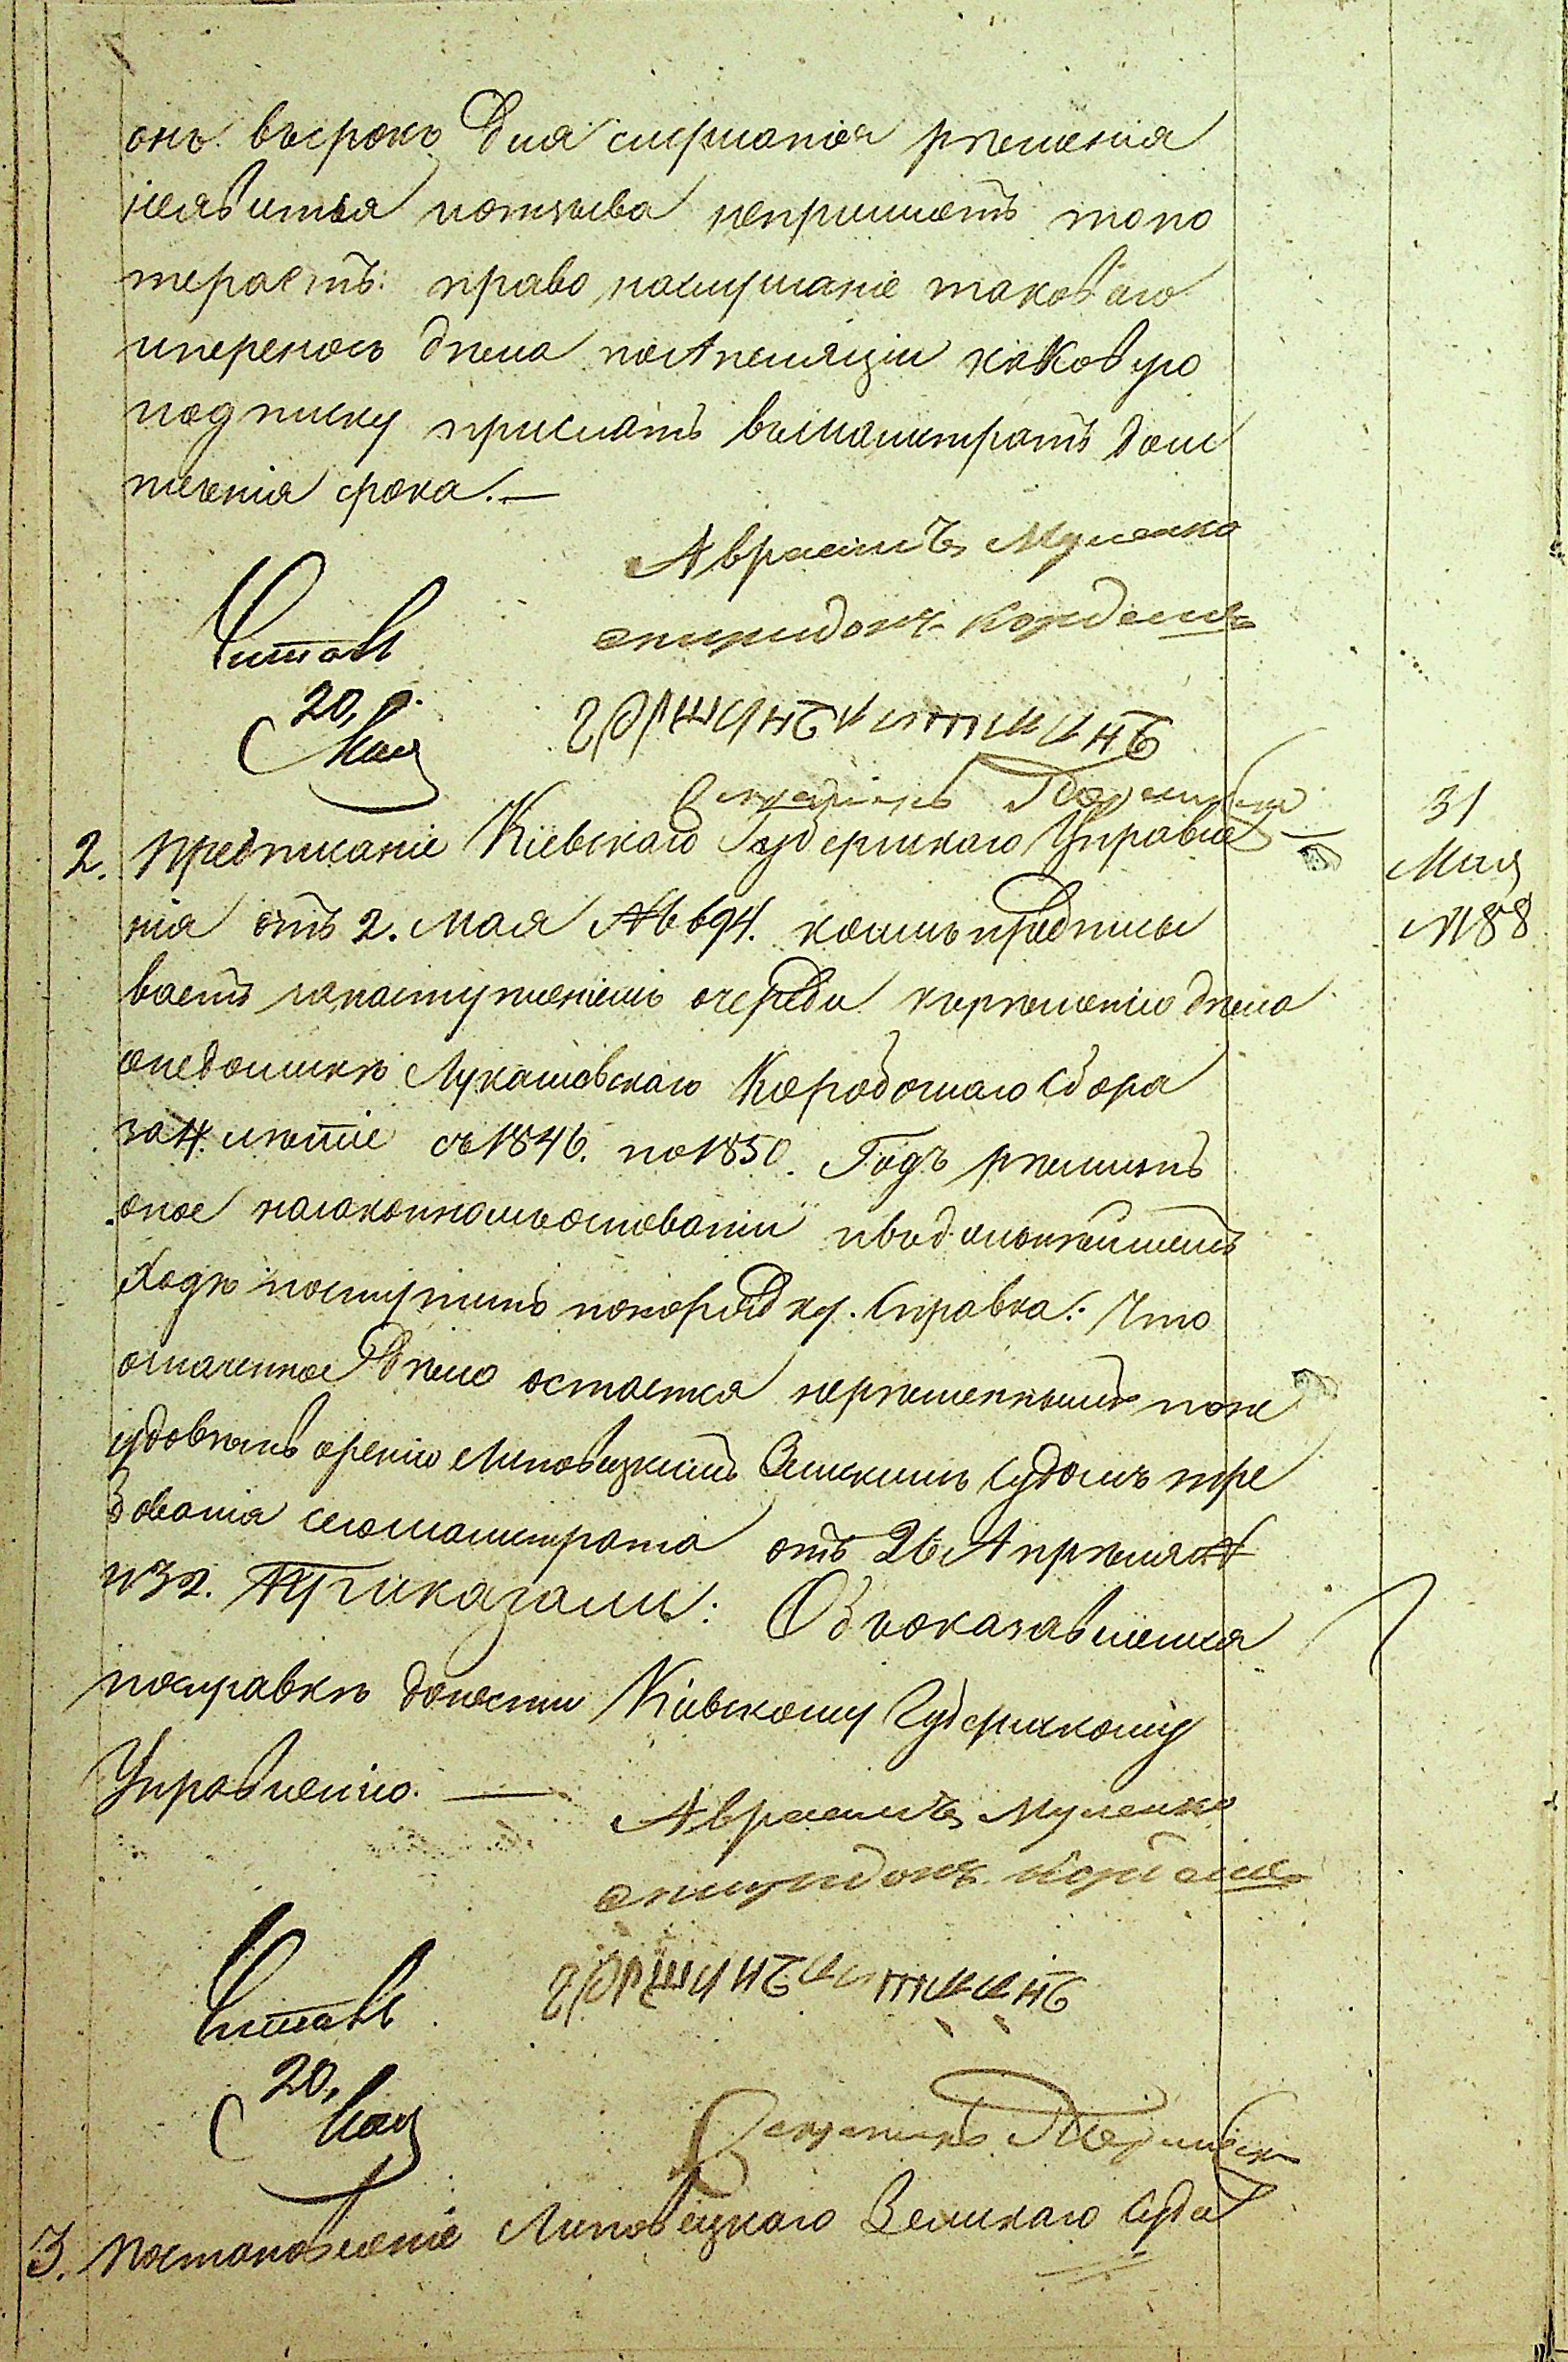 онъ въсрокъ для слушанія рѣшенія
неявится иотзыва непришлетъ топо
теряетъ право наслушаніе таковаго
иперенось дѣла поАпеляціи каковую
подписку прислать въмагистратъ доис
теченія срока. —
Авраамъ Мусенко
спиридонъ Кордашъ
Читалъ
20,
Мая
Секретарь
2. Предписаніе Кіевскаго Губернскаго Управле
31
Мая
№ 88
нія отъ 2. Мая № 694. коимъ предписы
ваетъ занаступленіемъ очереди кърѣшенію дѣла
онедоимкѣ Лукашовскаго Коробочнаго сбора
за 4. лѣтіе съ 1846. по 1850. Годъ рѣшить
оное назаконномъ основаніи ивъдальнѣйшемъ
Ходѣ поступить попорядку. Справка: Что
означенное Дѣло остается нерѣшеннымъ поне
удовлетворенію Липовецкимъ Земскимъ Судомъ тре
бованія сегомагистрата отъ 26 Апрѣля №
732. Приказали: Объоказавшемся
посправкѣ донести Кіевскому Губернскому
Управленію. —
Авраамъ Мусенко
спиридонъ Кордашъ
Читалъ
20,
Мая
Секретарь
3. Постановленіе Липовецкаго Земскаго Суда